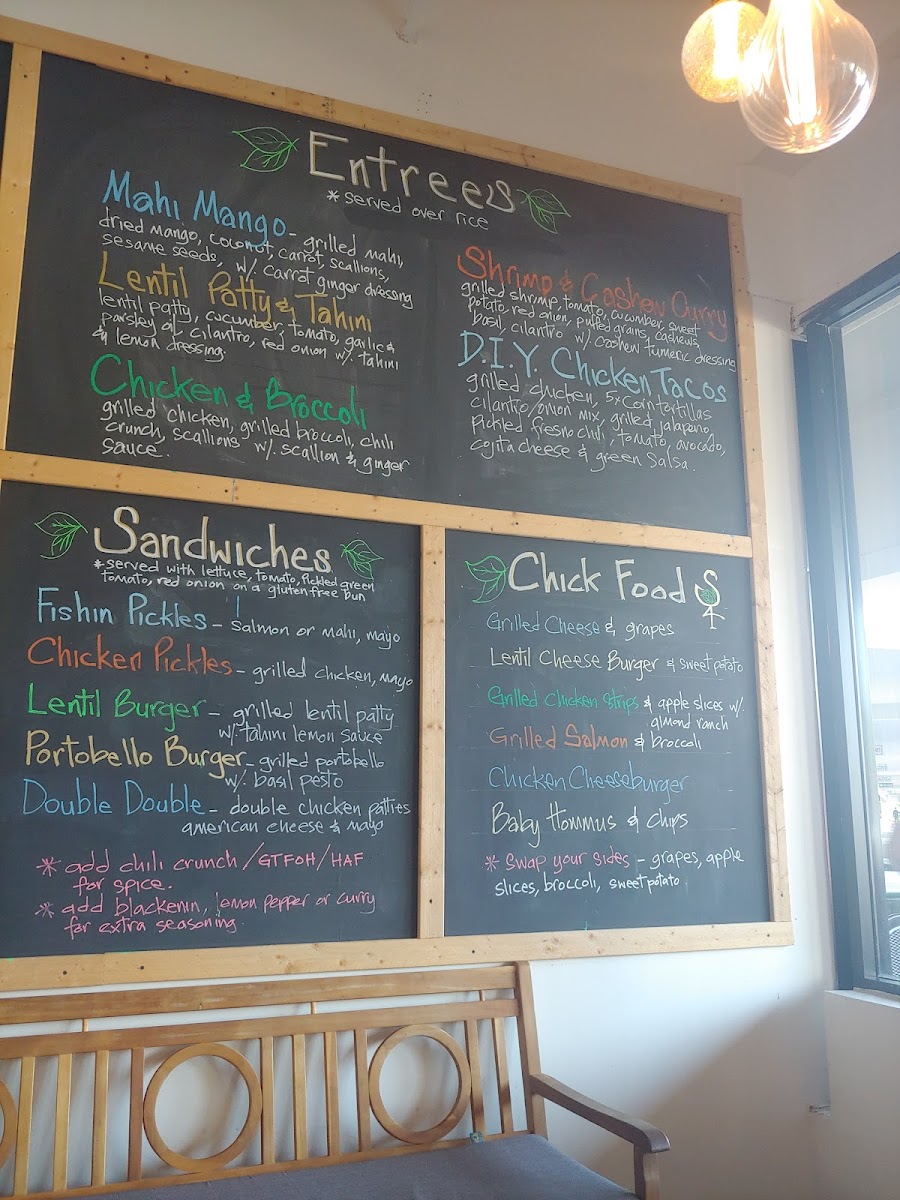 Entree's
*served over rice
Mahi Mango - grilled mahi,
dried mango, coconut, carrot, scallions,
sesame seeds, w/. carrot ginger dressing
Lentil Patty & Tahini
lentil patty, cucumber, tomato, garlic &
parsley oil, cilantro, red onion w/. tahini
& lemon dressing.
Chicken & Broccoli
grilled chicken, grilled broccoli, chili
crunch, scallions w/. scallion & ginger
sauce.
Shrimp & Cashew Curry
grilled shrimp, tomato, cucumber, sweet
potato, red onion, puffed grains, cashews,
basil, cilantro w/. cashew tumeric dressing
D.I.Y. Chicken Tacos
grilled chicken, 5x Corn tortillas
cilantro/onion mix, grilled jalapeno,
Pickled fresno chili, tomato, avocado,
cojita cheese & green Salsa.
Sandwiches
*served with lettuce, tomato, pickled green
tomato, red onion on a gluten free bun
Fishin Pickles - Salmon or mahi, mayo
Chicken Pickles - grilled chicken, mayo
Lentil Burger - grilled lentil patty
w/. tahini lemon sauce
Portobello Burger - grilled portobello
w/. basil pesto
Double Double - double chicken patties
american cheese & mayo
* add chili crunch / GTFOH / HAF
for spice.
* add blackenin, lemon pepper or curry
for extra seasoning.
Chick Food
Grilled Cheese & grapes
Lentil Cheese Burger & sweet potato
Grilled Chicken Strips & apple slices w/.
almond ranch
Grilled Salmon & broccoli
Chicken Cheeseburger
Baby Hommus & chips
* Swap your sides - grapes, apple
slices, broccoli, sweet potato